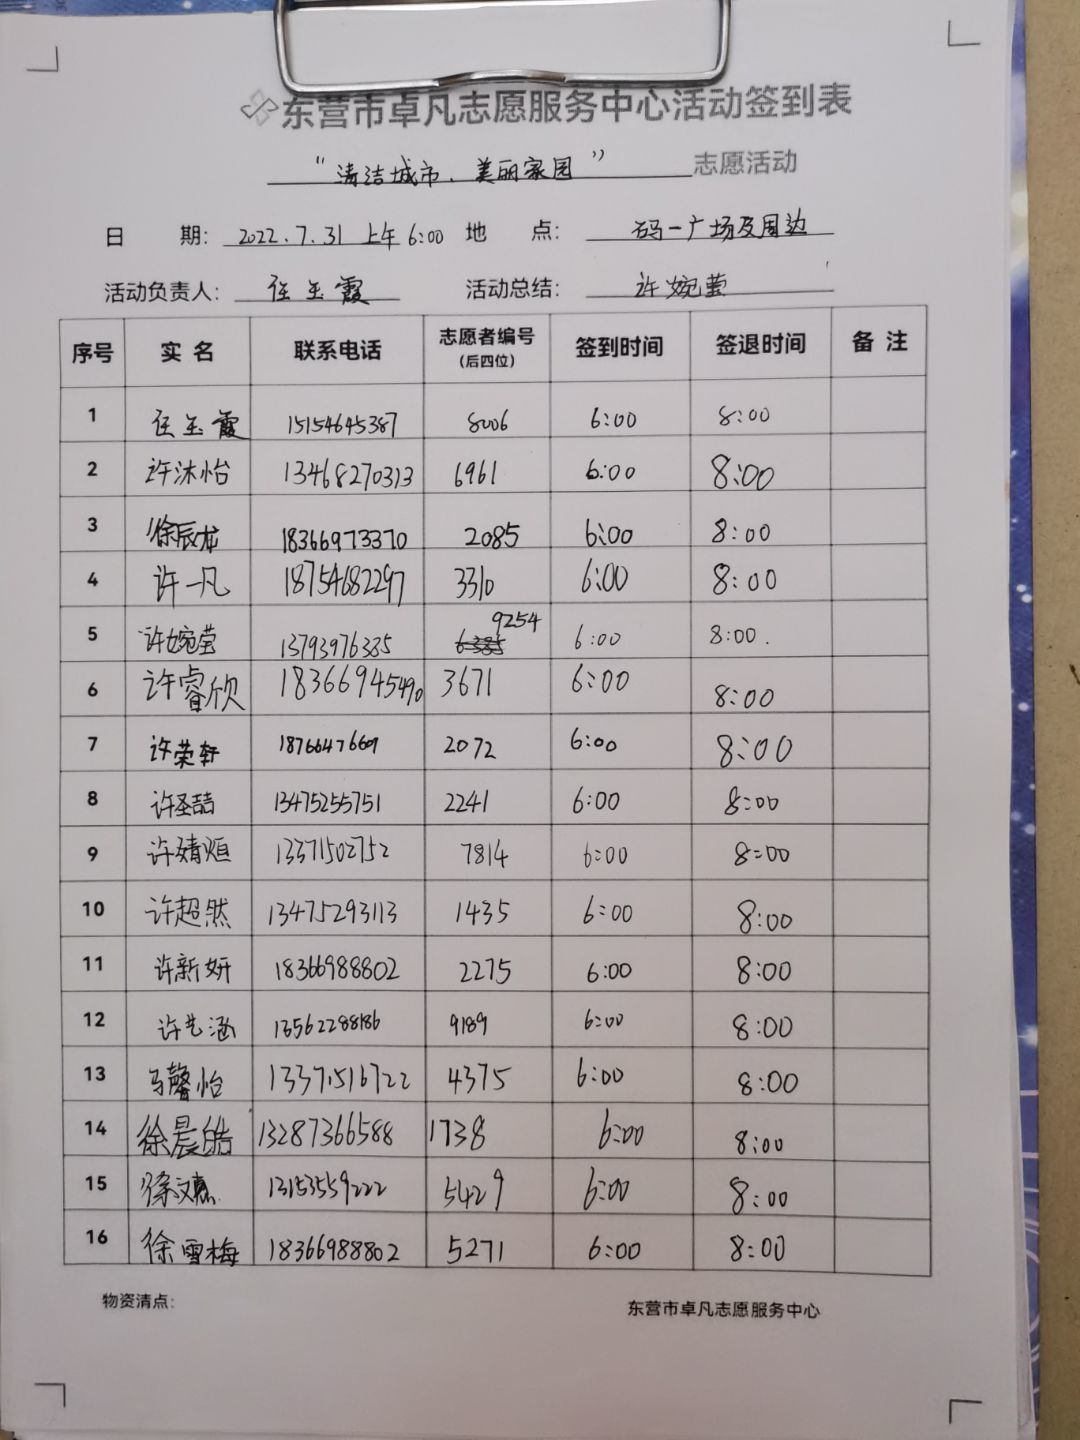 东营市卓凡志愿服务中心活动签到表
“清洁城市、美丽家园” 志愿活动
日 期: 2022.7.31 上午 6:00 地 点: 码一广场及周边
活动负责人: 任玉霞 活动总结: 许婉莹
序号 实名 联系电话 志愿者编号 签到时间 签退时间 备注
(后四位)
1 任玉霞 15154645387 8006 6:00 8:00
2 许沐怡 13468270313 6961 6:00 8:00
3 徐辰龙 18366973370 2085 6:00 8:00
4 许一凡 18754682297 3310 6:00 8:00
5 许婉莹 13793976385 9254 6:00 8:00.
6 许睿欣 18366945490 3671 6:00 8:00
7 许荣轩 2072 6:00 8:00
8 许圣喆 13475255751 2241 6:00 8:00
9 许婧烜 13371502752 7814 6:00 8:00
10 许超然 13475293113 1435 6:00 8:00
11 许新妍 18366988802 2275 6:00 8:00
12 许艺涵 13562288186 9189 6:00 8:00
13 马馨怡 13371516722 4375 6:00 8:00
14 徐晨皓 13287366588 1738 6:00 8:00
15 13153559222 5429 6:00 8:00
16 徐雪梅 18366988802 5271 6:00 8:00
物资清点:
东营市卓凡志愿服务中心